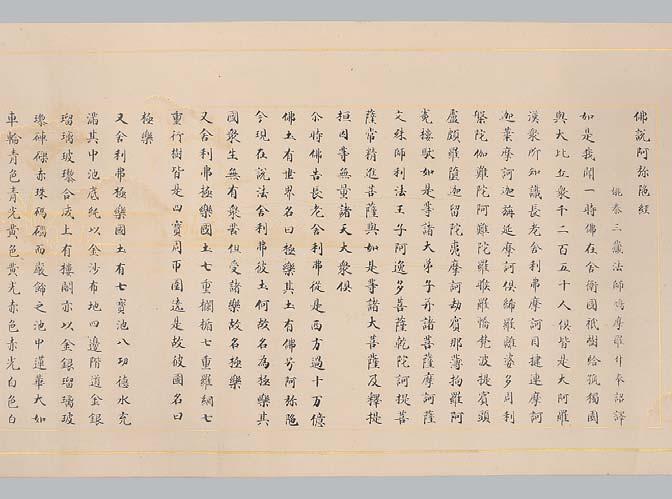 佛說阿弥陁經
姚秦三藏法師鳩摩羅什奉詔譯
如是我聞一時佛在舍衛國祇樹給孤獨園
與大比丘衆千二百五十人俱皆是大阿羅
漢衆所知識長老舍利弗摩訶目揵連摩訶
迦葉摩訶迦旃延摩訶俱絺羅離婆多周利
槃陀伽難陀阿難陀羅睺羅憍梵波提賓頭
盧頗羅墮迦留陀夷摩訶劫賓那薄拘羅阿
㝹樓馱如是等諸大弟子并諸菩薩摩訶薩
文殊師利法王子阿逸多菩薩乾陀訶提菩
薩常精進菩薩與如是等諸大菩薩及釋提
桓因等無量諸天大衆俱
尒時佛告長老舍利弗從是西方過十万億
佛土有世界名曰極樂其土有佛号阿弥陁
今現在說法舍利弗彼土何故名為極樂其
國衆生無有衆苦但受諸樂故名極樂
又舍利弗極樂國土七重欄楯七重羅網七
重行樹皆是四寶周帀圍遶是故彼國名曰
極樂
又舍利弗極樂國土有七寶池八功德水充
滿其中池底純以金沙布地四邊階道金銀
瑠璃玻瓈合成上有樓閣亦以金銀瑠璃玻
瓈硨磲赤珠碼碯而嚴飾之池中蓮華大如
車輪青色青光黄色黄光赤色赤光白色白